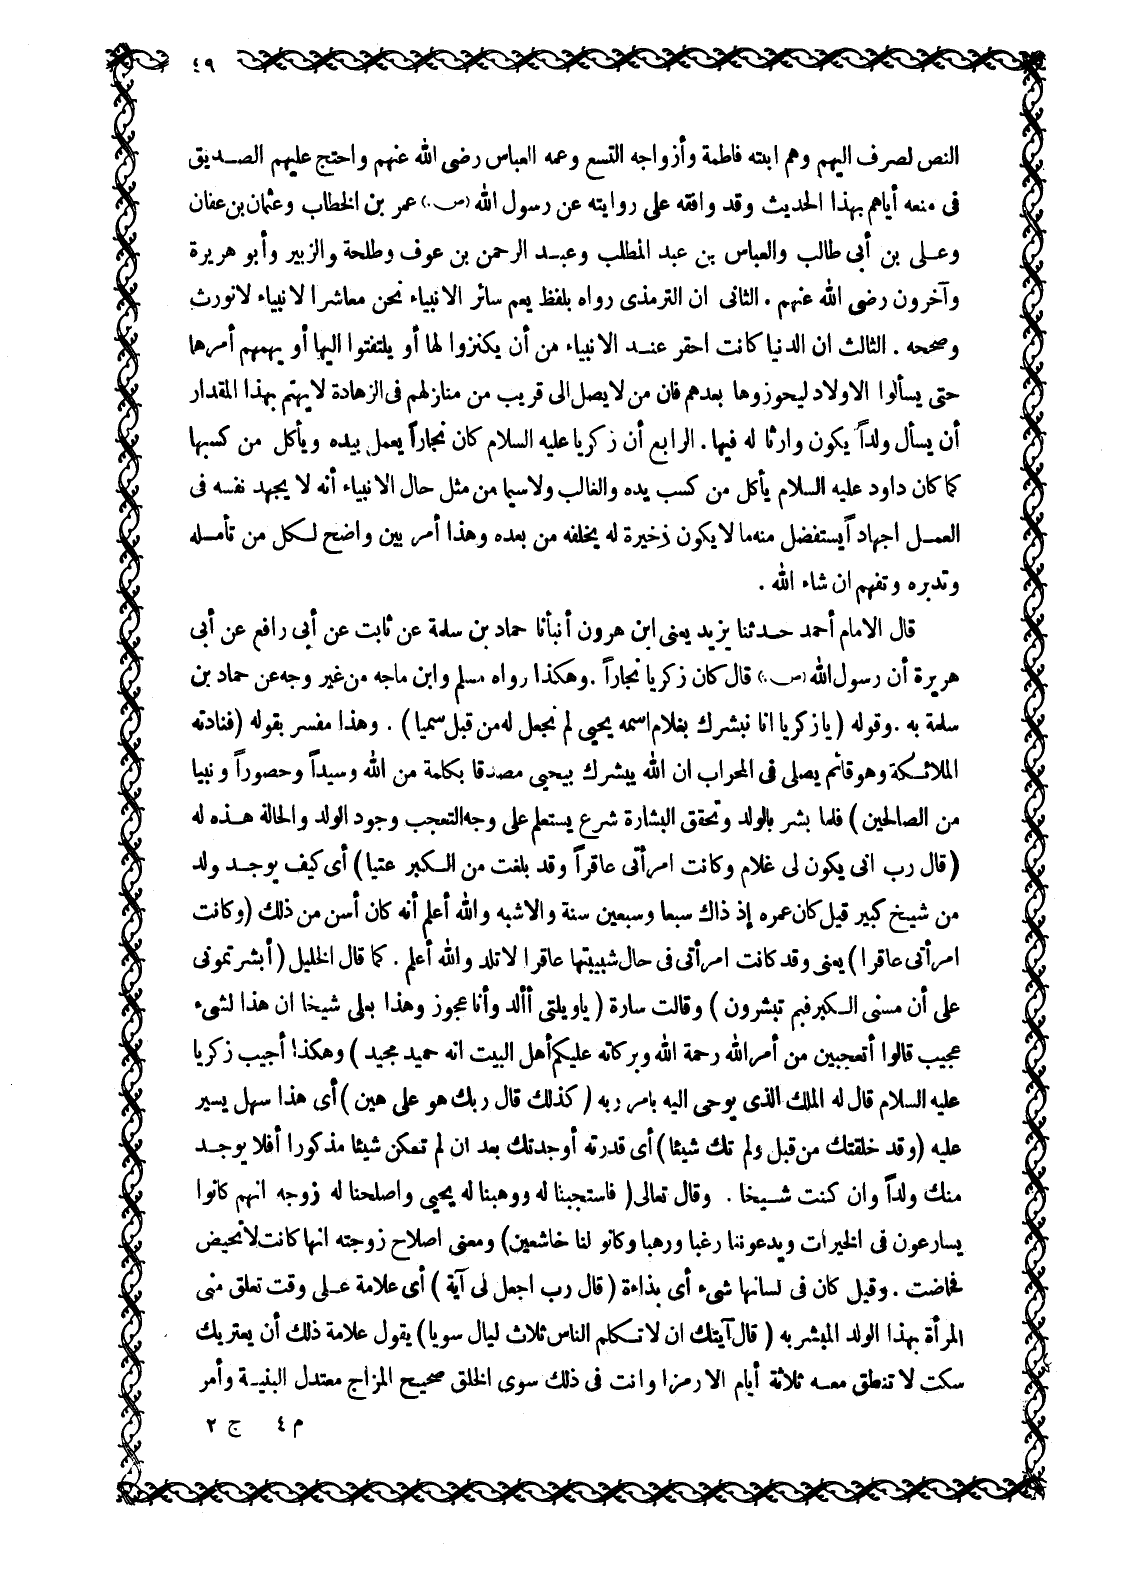 ٤٩
النص لصرف اليهم وهم ابنته فاطمة وأزواجه التسع وعمه العباس رضى الله عنهم واحتج عليهم الصديق
فى منعه أياهم بهذا الحديث وقد وافقه على روايته عن رسول الله (ص.) عمر بن الخطاب وعثمان بن عفان
وعلى بن أبى طالب والعباس بن عبد المطلب وعبد الرحمن بن عوف وطلحة والزبير وأبو هريرة
وآخرون رضى الله عنهم . الثانى ان الترمذى رواه بلفظ يعم سائر الانبياء نحن معاشرا لانبياء لانورث
وصححه . الثالث ان الدنيا كانت احقر عند الانبياء من أن يكنزوا لها أو يلتفتوا اليها أو يهمهم أمرها
حتى يسألوا الاولاد ليحوزوها بعدهم فان من لايصل الى قريب من منازلهم فى الزهادة لايهتم بهذا المقدار
أن يسأل ولداً يكون وارثا له فيها . الرابع أن زكريا عليه السلام كان نجاراً يعمل بيده ويأكل من كسبها
كما كان داود عليه السلام يأكل من كسب يده والغالب ولاسيما من مثل حال الانبياء أنه لا يجهد نفسه فى
العمل اجهاداً يستفضل منه ما لايكون ذخيرة له يخلفه من بعده وهذا أمر بين واضح لكل من تأمله
وتدبره وتفهم ان شاء الله .
قال الامام أحمد حدثنا يزيد يعنى ابن هرون أنبأنا حماد بن سلمة عن ثابت عن أبى رافع عن أبى
هريرة أن رسول الله (ص.) قال كان زكريا نجاراً . وهكذا رواه مسلم وابن ماجه من غير وجه عن حماد بن
سلمة به . وقوله ( يا زكريا انا نبشرك بغلام اسمه يحيى لم نجعل له من قبل سميا ) . وهذا مفسر بقوله ( فنادته
الملائكة وهو قائم يصلى فى المحراب ان الله يبشرك بيحيى مصدقا بكلمة من الله وسيداً وحصوراً ونبيا
من الصالحين ) فلما بشر بالولد وتحقق البشارة شرع يستعلم على وجه التعجب وجود الولد والحالة هذه له
( قال رب انى يكون لى غلام وكانت امرأتى عاقراً وقد بلغت من الكبر عتيا ) أى كيف يوجد ولد
من شيخ كبير قيل كان عمره إذ ذاك سبعا وسبعين سنة والاشبه والله أعلم أنه كان أسن من ذلك ( وكانت
امرأتى عاقرا ) يعنى وقد كانت امرأتى فى حال شبيبتها عاقرا لا تلد والله أعلم . كما قال الخليل ( أبشرتمونى
على أن مسنى الكبر فبم تبشرون ) وقالت سارة ( ياويلتى أألد وأنا عجوز وهذا بعلى شيخا ان هذا لشىء
عجيب قالوا أتعجبين من أمر الله رحمة الله وبركاته عليكم أهل البيت انه حميد مجيد ) وهكذا أجيب زكريا
عليه السلام قال له الملك الذى يوحى اليه بامر ربه ( كذلك قال ربك هو على هين ) أى هذا سهل يسير
عليه ( وقد خلقتك من قبل ولم تك شيئا ) أى قدرته أوجدتك بعد ان لم تكن شيئا مذكورا أفلا يوجد
منك ولداً وان كنت شيخا . وقال تعالى ( فاستجبنا له ووهبنا له يحيى واصلحنا له زوجه انهم كانوا
يسارعون فى الخيرات ويدعوننا رغبا ورهبا وكانو لنا خاشعين ) ومعنى اصلاح زوجته انها كانت لا تحيض
فحاضت . وقيل كان فى لسانها شىء أى بذاءة ( قال رب اجعل لى آية ) أى علامة على وقت تعلق منى
المرأة بهذا الولد المبشر به ( قال آيتك ان لا تكلم الناس ثلاث ليال سويا ) يقول علامة ذلك أن يعتريك
سكت لا تنطق معه ثلاثة أيام الا رمزا وانت فى ذلك سوى الخلق صحيح المزاج معتدل البنية وأمر
م ٤ ج ٢